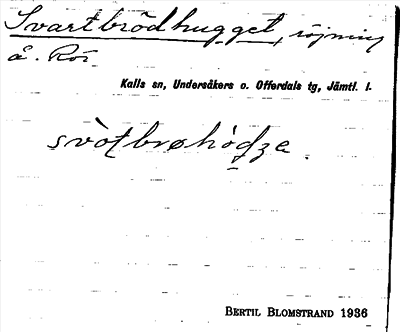 Svartbrödhugget, röjning
å. Rör.
Kalls sn, Undersåkers o. Offerdals tg, Jämtl. l.
svòtbrøhòdza.
BERTIL BLOMSTRAND 1936